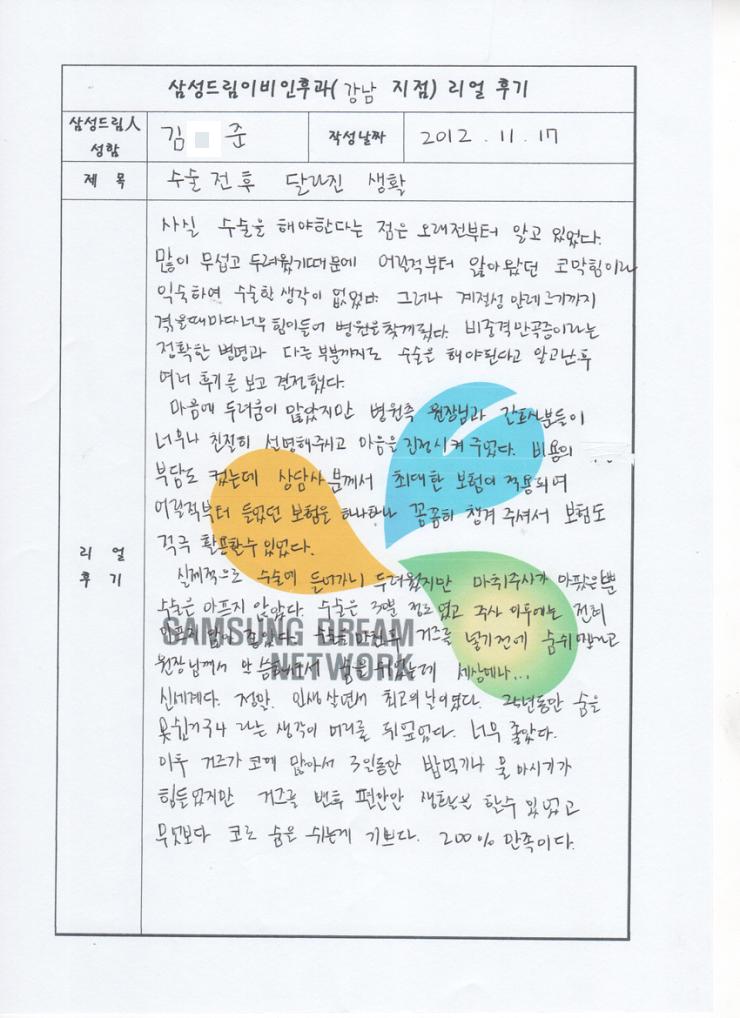 삼성드림이비인후과( 강남 지점) 리얼 후기
삼성드림人 성함
김 준
작성날짜
2012 . 11 . 17
제 목
수술 전 후 달라진 생활
리 얼 후 기
사실 수술을 해야한다는 점은 오래전부터 알고 있었다.
많이 무섭고 두려웠기때문에 어릴적부터 앓아왔던 코막힘이라
익숙하여 수술할 생각이 없었다. 그러나 계절성 알레르기까지
겪을때마다 너무 힘이들어 병원을 찾게됐다. 비중격만곡증이라는
정확한 병명과 다른 부분까지도 수술을 해야된다고 알고난후
여러 후기를 보고 결정했다.
마음에 두려움이 많았지만 병원측 원장님과 간호사분들이
너무나 친절히 설명해주시고 마음을 진정시켜 주었다. 비용의
부담도 컸는데 상담사분께서 최대한 보험이 적용되며
어릴적부터 들었던 보험을 하나하나 꼼꼼히 챙겨 주셔서 보험도
적극 활용할수 있었다.
실제적으로 수술에 들어가니 두려웠지만 마취주사가 아팠을뿐
수술은 아프지 않았다. 수술은 30분 정도였고 주사 이후에는 전혀
아프지 않아 좋았다. 거즈를 넣기전에 숨쉬
원장님께서 말씀하셔서 숨을 쉬었는데 세상에나...
신세계다. 정말. 인생 살면서 최고의 날이였다. 24년동안 숨을
못쉰거구나 라는 생각이 머리를 뒤엎었다. 너무 좋았다.
이후 거즈가 코에 많아서 3일동안 밥먹기나 물 마시기가
힘들었지만 거즈를 뺀후 편안한 생활을 할수 있었고
무엇보다 코로 숨을 쉬는게 기쁘다. 200% 만족이다.
SAMSUNG DREAM
NETWORK